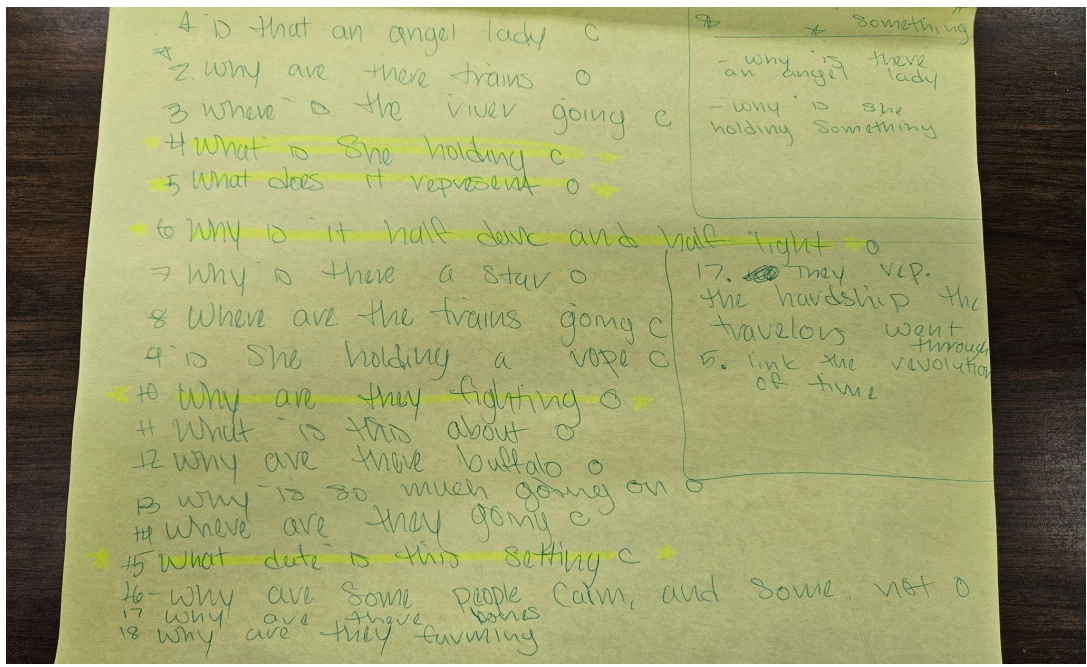 1 is that an angel lady C
2. Why are there trains O
3 where is the river going C
4 What is She holding C
5 What does it represent O
6 Why is it half dark and half light O
7 Why is there a star O
8 Where are the trains going C
9 is She holding a rope C
10 Why are they fighting O
11 What is this about O
12 Why are there buffalo O
13 why is so much going on O
14 where are they going C
15 What date is this setting C
16 - why are Some people Calm, and Some not O
17 why are there bones
18 why are they farming
Something
- why is there
an angel lady
- why is she
holding Something
17. They rep.
the hardship the
travelors went
through
5. link the revolution
of time